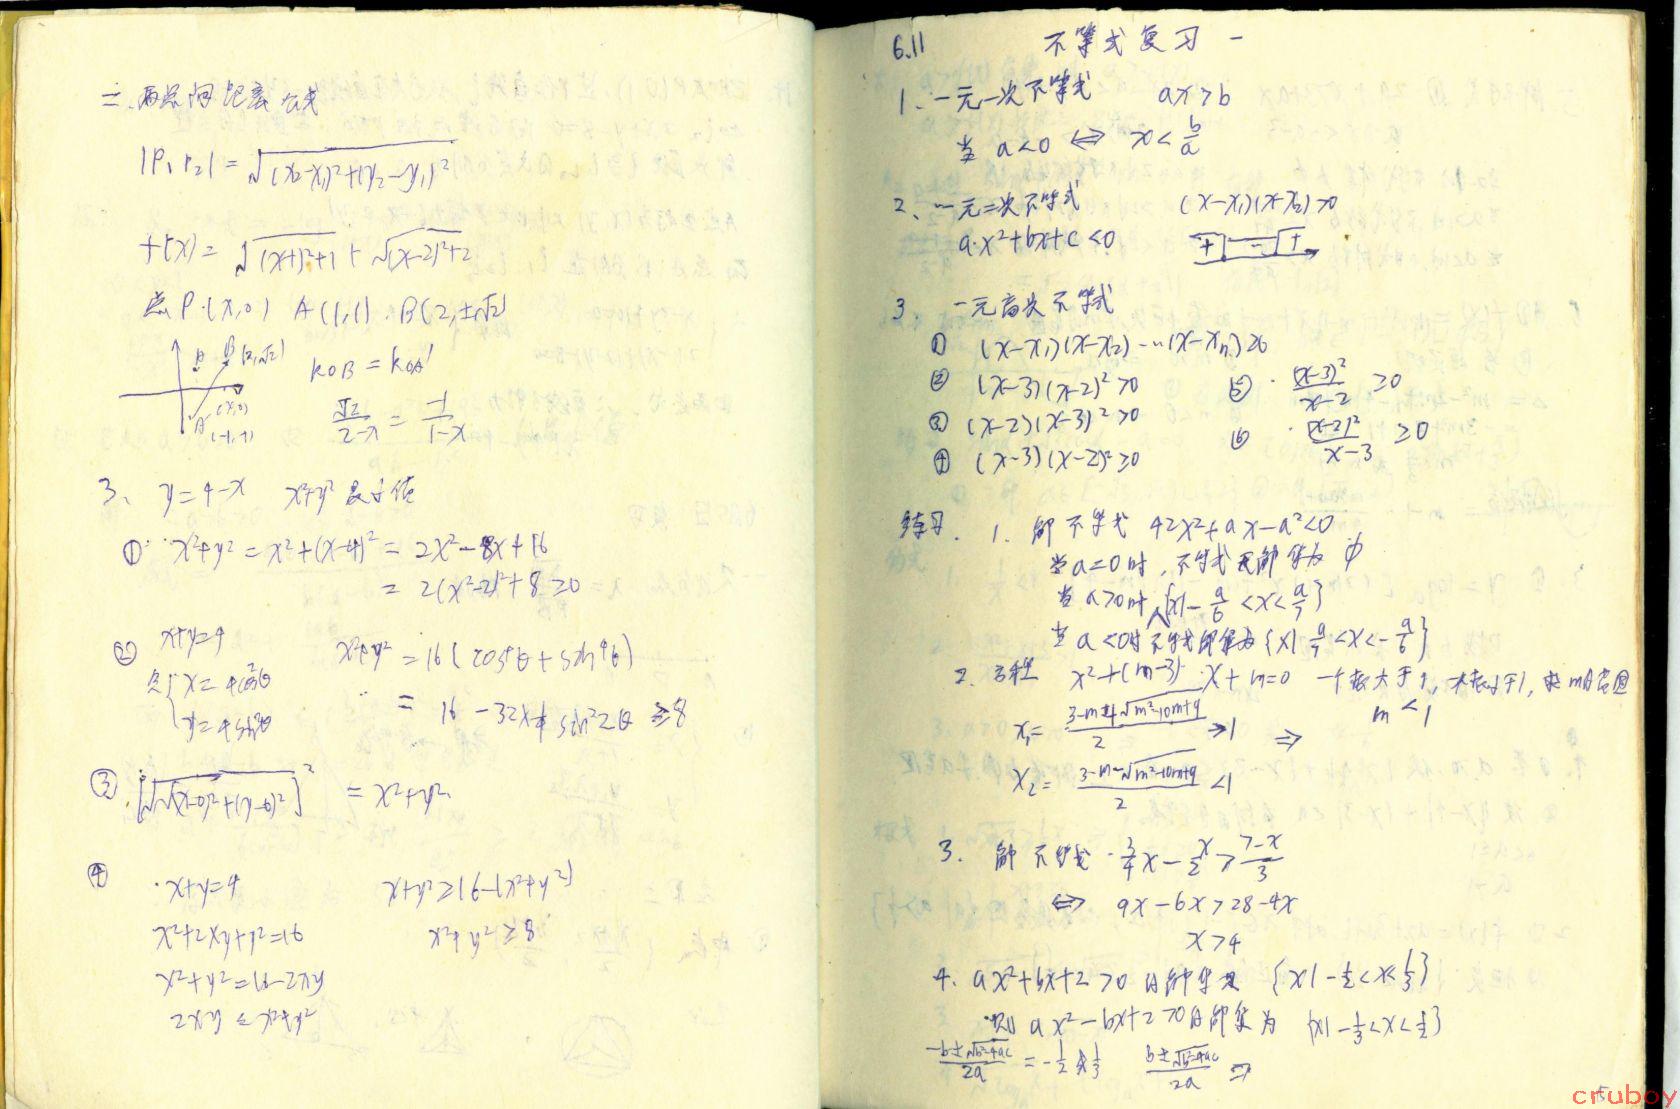 二、两点间距离公式
|P₁P₂| = √(x₂-x₁)²+(y₂-y₁)²
f(x) = √(x+1)²+1 + √(x-2)²+2
点P(x,0) A(1,1) B(2,±√2)
B(2,√2)
(x,0)
A'(-1,-1)
kOB = kOA'
√2/(2-x) = -1/(1-x)
3、 y=4-x x²+y² 最小值
① x²+y² = x²+(x-4)² = 2x²-8x+16
= 2(x²-2)²+8≥0
② x+y=4 x²+y² = 16(cos⁴θ+sin⁴θ)
{x=4cos²θ
{y=4sin²θ
= 16-32×¼ sin²2θ ≥8
③ [√(x-0)²+(y-0)²]² = x²+y²
④ x+y=4 x+y²≥16-(x²+y²)
x²+2xy+y²=16 x²+y²≥8
x²+y²=16-2xy
2xy ≤ x²+y²
6.11 不等式复习一
1. 一元一次不等式 ax>b
当 a<0 ⇔ x< b/a
2. 一元二次不等式 (x-x₁)(x-x₂)>0
a·x²+bx+c<0 + - +
3 一元高次不等式
① (x-x₁)(x-x₂)…(x-xₙ)≥0
② (x-3)(x-2)²>0 ⑤ (x-3)²/(x-2) ≥0
③ (x-2)(x-3)²>0 ⑥ (x-2)²/(x-3) ≥0
④ (x-3)(x-2)²≥0
练习. 1. 解不等式 42x²+ax-a²<0
当a=0时,不等式 解集为 φ
当 a>0时 {x|-a/6 <x< a/7}
当 a<0时不等式解集为 {x| a/7 <x<- a/6}
2. 方程 x²+(m-3)·x+m=0 一个根大于1, 一根小于1, 求m的范围
x₁= (3-m+√m²-10m+9)/2 >1 ⇒ m<1
x₂= (3-m-√m²-10m+9)/2 <1
3. 解不等式 ¾x- x/2 > (7-x)/3
⇔ 9x-6x>28-4x
x>4
4. ax²+bx+2>0的解集是 {x|-½<x<⅓}
则 ax²-bx+2>0的解集为 {x|-⅓<x<½}
(-b±√b²-4ac)/2a = -½ 或 ⅓ (b±√b²-4ac)/2a ⇒
cruboy